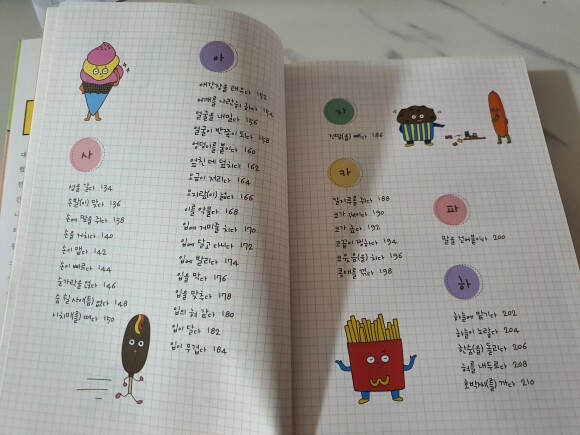 사
134
손발(이) 맞다 136
손에 땀을 쥐다 138
손을 거치다 140
손이 맵다 142
손이 빠르다 144
숟가락을 146
숨 쉴 사이(틈) 없다 148
시치미(를) 떼다 150
아
애간장을 태우다 152
어깨를 나란히 하다 154
얼굴을 내밀다 156
얼굴이 반쪽이 되다 158
엉덩이를 붙이다 160
엎친 데 덮치다 162
오금이 저리다 164
오지랖(이) 넓다 166
이를 악물다 168
입에 거미줄 치다 170
입에 달고 다니다 172
입에 발리다 174
입을 막다 176
입을 맞추다 178
입의 혀 같다 180
입이 달다 182
입이 무겁다 184
자
진땀(을) 빼다 186
카
칼자루를 쥐다 188
코가 190
코가 높다 192
코끝이 찡하다 194
코웃음(을) 치다 196
콧대를 꺾다 198
파
팔을 걷어붙이다 200
하
하늘에 맡기다 202
하늘이 노랗다 204
한숨(을) 돌리다 206
혀를 내두르다 208
호박씨(를) 까다 210